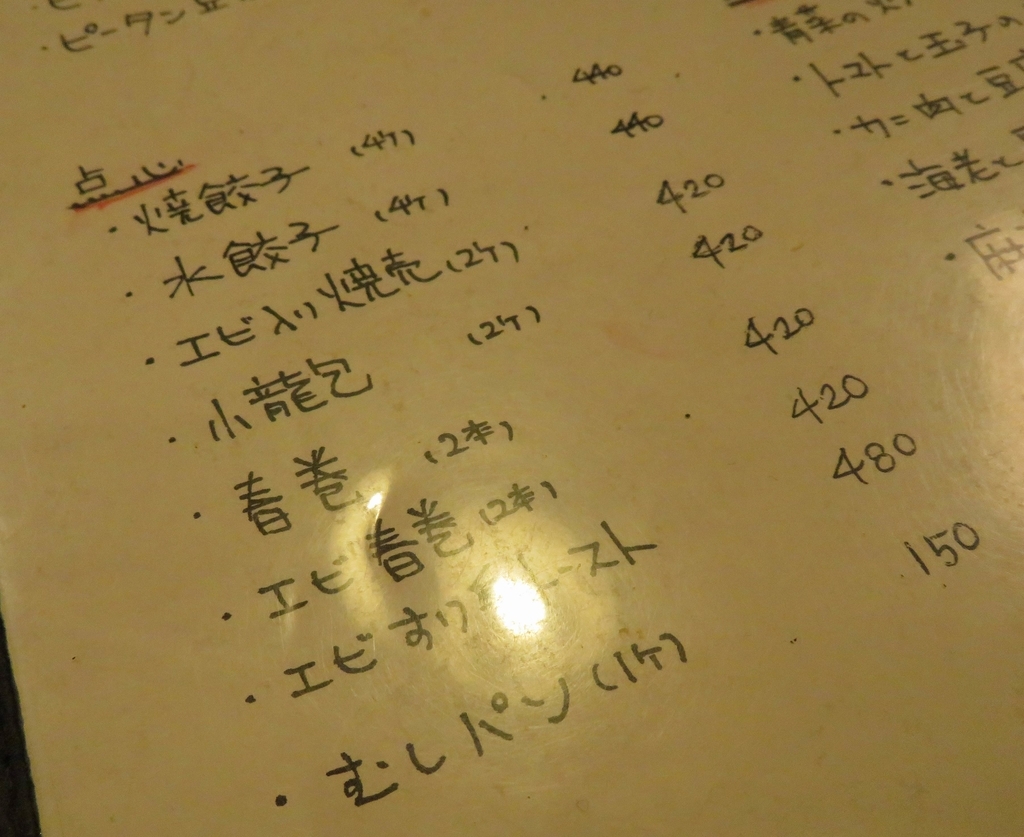 ・ピータン豆
点心
・焼餃子 (4ケ) 440
・水餃子 (4ケ) 440
・エビ入り焼売(2ケ) 420
・小龍包 (2ケ) 420
・春巻 (2本) 420
・エビ春巻 (2本) 420
・エビすり トースト 480
・むしパン(1ケ) 150
・青菜の
・トマトと玉子の
・カニ肉と豆腐
・海老と